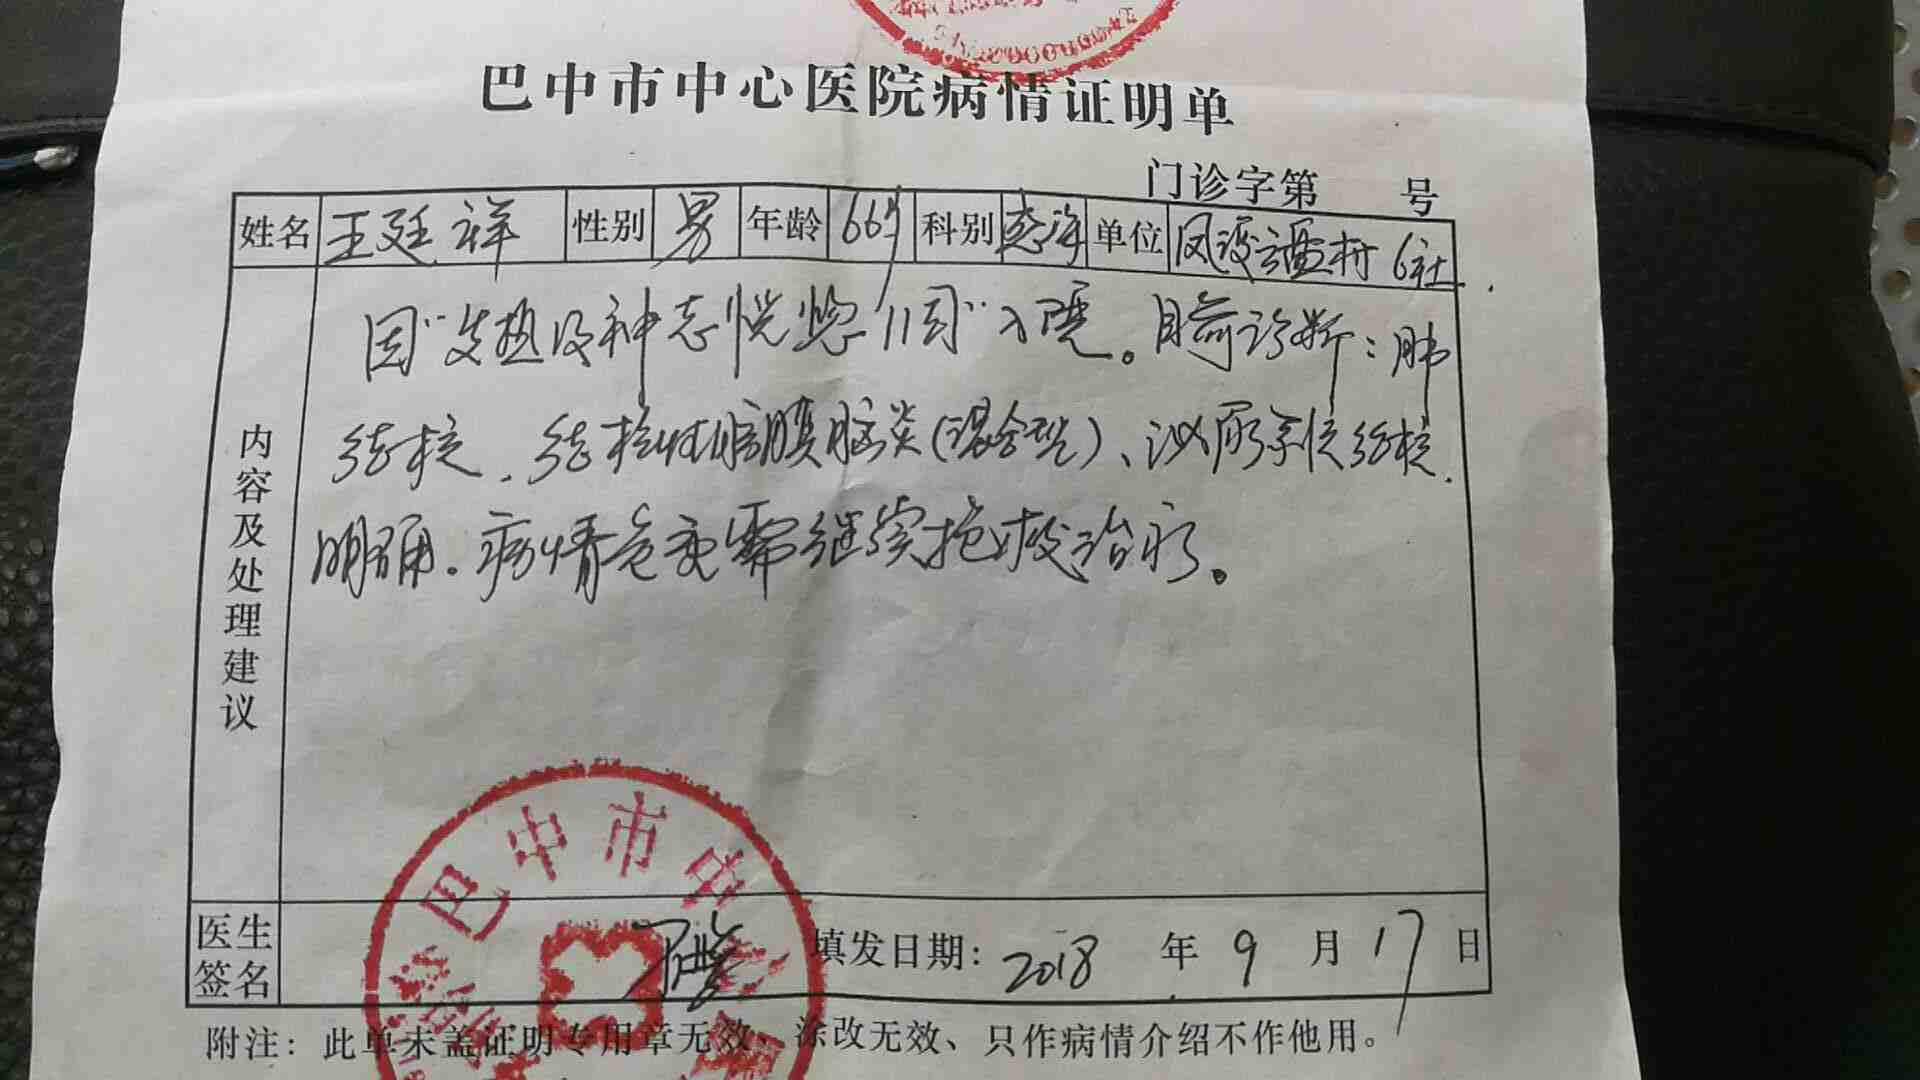 巴中市中心医院病情证明单
门诊字第 号
姓名 王廷祥 性别 男 年龄 66岁 科别 单位 村6社
内容及处理建议
因"发热及神志恍惚11+天"入院。目前诊断:肺
结核、结核性脑膜脑炎(混合型)、泌尿系统结核.
病情危重需继续抢救治疗。
巴中市中
医生签名 填发日期: 2018 年 9 月 17 日
附注: 此单未盖证明专用章无效、涂改无效、只作病情介绍不作他用。